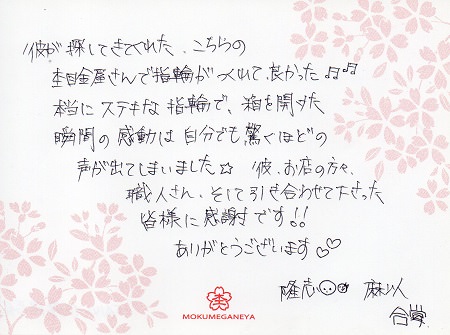 彼が探してきてくれた、こちらの
杢目金屋さんで指輪がつくれて、良かった♫♫
本当にステキな指輪で、箱を開けた
瞬間の感動は自分でも驚くほどの
声が出てしまいました☆ 彼、お店の方々、
職人さん、そして引き合わせて下さった
皆様に感謝です!!
ありがとうございます♡♡
隆志 麻以
合掌
MOKUMEGANEYA